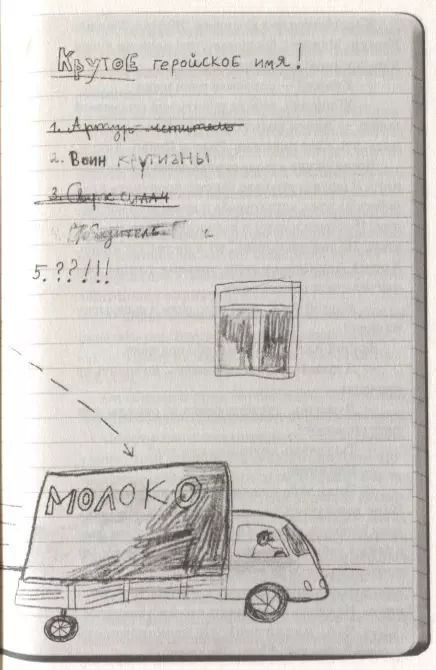 Крутое геройское имя!
1. Артур мститель
2. Воин крутизны
3. Сверхсилач
4. Победитель
5. ??!!!
МОЛОКО